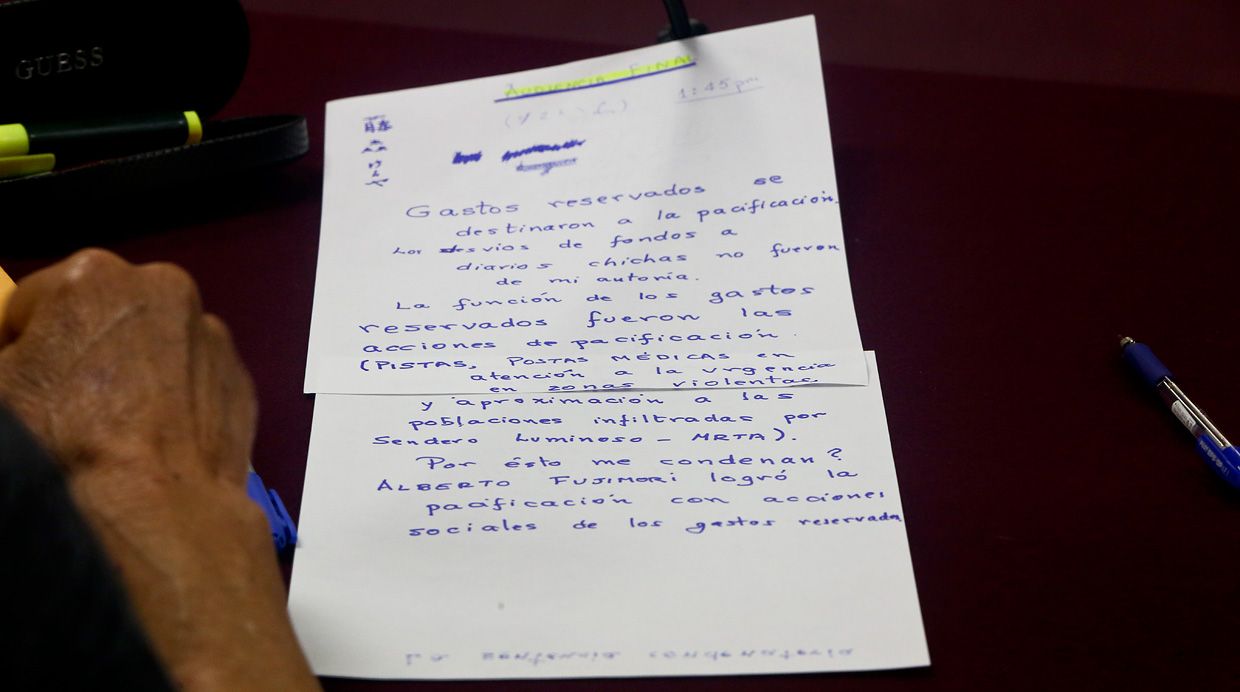 GUESS
AUDIENCIA FINAL
1:45pm
藤
森
Gastos reservados se
destinaron a la pacificación.
Los desvios de fondos a
diarios chichas no fueron
de mi autoría.
La función de los gastos
reservados fueron las
acciones de pacificación.
(PISTAS, POSTAS MÉDICAS en
atención a la urgencia
en zonas violentas
y aproximación a las
poblaciones infiltradas por
Sendero Luminoso - MRTA).
Por ésto me condenan?
ALBERTO FUJIMORI logró la
pacificación con acciones
sociales de los gastos reservados
La sentencia condenatoria